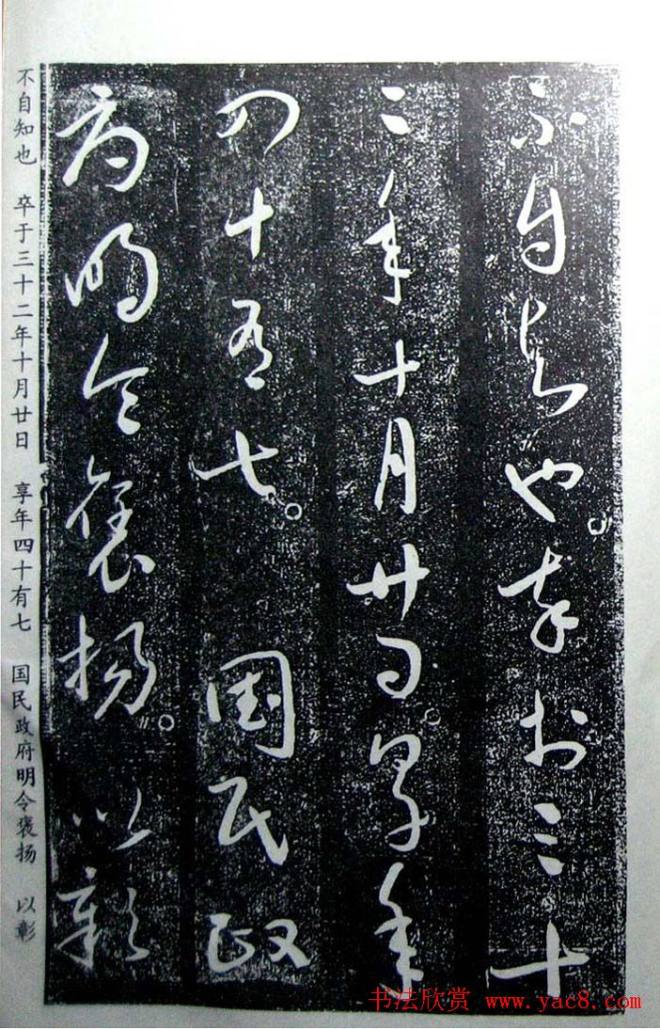 不自知也。卒於三十
二年十月廿日。享年
四十有七。國民政
府明令褒揚。以彰
不自知也 卒于三十二年十月廿日 享年四十有七 国民政府明令褒扬 以彰
书法欣赏 www.yac8.com